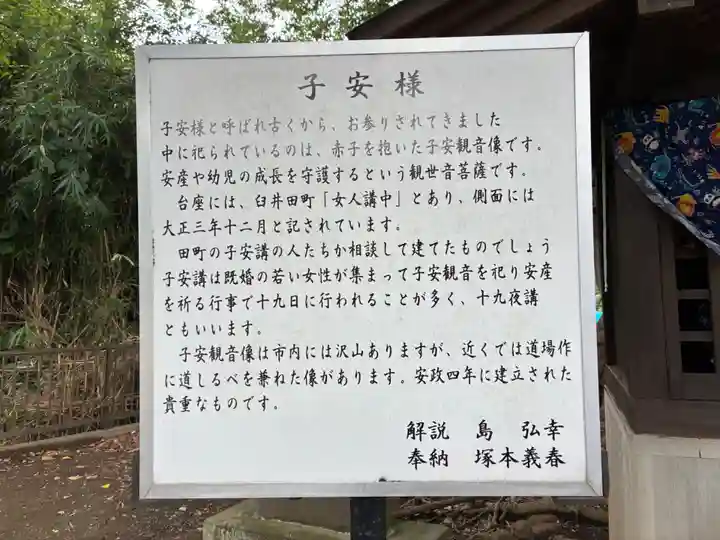 子安様
子安様と呼ばれ古くから、お参りされてきました
中に祀られているのは、赤子を抱いた子安観音像です。
安産や幼児の成長を守護するという観世音菩薩です。
台座には、臼井田町「女人講中」とあり、側面には
大正三年十二月と記されています。
田町の子安講の人たちか相談して建てたものでしょう
子安講は既婚の若い女性が集まって子安観音を祀り安産
を祈る行事で十九日に行われることが多く、十九夜講
ともいいます。
子安観音像は市内には沢山ありますが、近くでは道場作
に道しるべを兼ねた像があります。安政四年に建立された
貴重なものです。
解説 島 弘幸
奉納 塚本義春